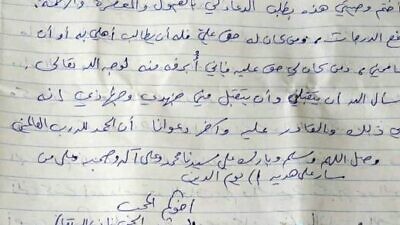 وصيتي هذه بطلب الدعاء لي بالقبول والمغفرة والرحمة
ع الدرجات، ومن كان له حق علي فله أن يطالب أهلي به أو أن
سامحني، ومن كان لي حق عليه فإني أبرئه منه لوجه الله تعالى
سأل الله أن يتقبلني وأن يتقبل مني جهدي وجهادي إنه
ي ذلك والقادر عليه وآخر دعوانا أن الحمد لله رب العالمين
وصل اللهم وسلم وبارك على سيدنا محمد وعلى آله وصحبه وعلى من
سار على هديه إلى يوم الدين
أخوكم المحب